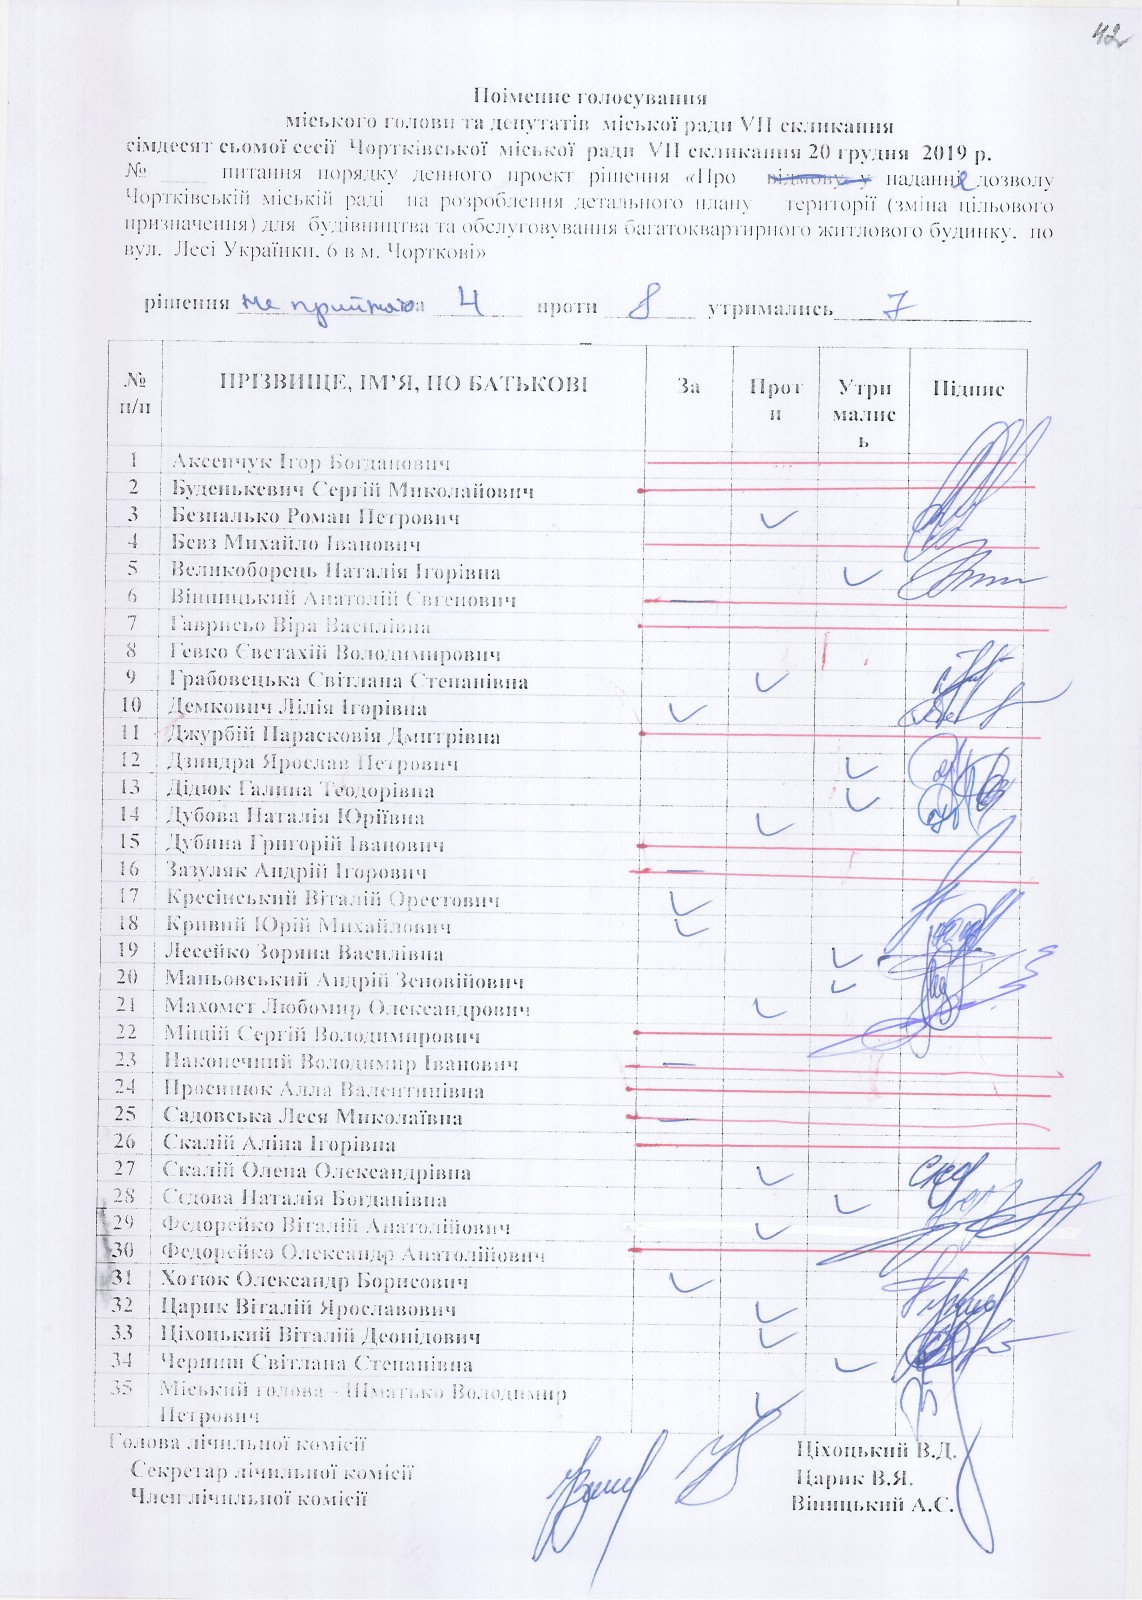 42
Поіменне голосування
міського голови та депутатів міської ради VII скликання
сімдесят сьомої сесії Чортківської міської ради VII скликання 20 грудня 2019 р.
№ ____ питання порядку денного проект рішення «Про відмову у наданнія дозволу
Чортківській міській раді на розроблення детального плану території (зміна цільового
призначення) для будівництва та обслуговування багатоквартирного житлового будинку, по
вул. Лесі Українки, 6 в м. Чорткові»
рішення не прийнято за 4 проти 8 утримались 7
№ п/п ПРІЗВИЩЕ, ІМ’Я, ПО БАТЬКОВІ За Проти Утрималисьь Підпис
1 Аксенчук Ігор Богданович
2 Буденькевич Сергій Миколайович
3 Безпалько Роман Петрович
4 Бевз Михайло Іванович
5 Великоборець Наталія Ігорівна
6 Вінницький Анатолій Євгенович
7 Гаврисьо Віра Василівна
8 Гевко Євстахій Володимирович
9 Грабовецька Світлана Степанівна
10 Демкович Лілія Ігорівна
11 Джурбій Парасковія Дмитрівна
12 Дзиндра Ярослав Петрович
13 Дідюк Галина Теодорівна
14 Дубова Наталія Юріївна
15 Дубина Григорій Іванович
16 Зазуляк Андрій Ігорович
17 Кресінський Віталій Орестович
18 Кривий Юрій Михайлович
19 Лесейко Зоряна Василівна
20 Маньовський Андрій Зеновійович
21 Махомет Любомир Олександрович
22 Міщій Сергій Володимирович
23 Наконечний Володимир Іванович
24 Просинюк Алла Валентинівна
25 Садовська Леся Миколаївна
26 Скалій Аліна Ігорівна
27 Скалій Олена Олександрівна
28 Сєдова Наталія Богданівна
29 Федорейко Віталій Анатолійович
30 Федорейко Олександр Анатолійович
31 Хотюк Олександр Борисович
32 Царик Віталій Ярославович
33 Ціхоцький Віталій Деонідович
34 Чернини Світлана Степанівна
35 Міський голова - Шматько Володимир
Петрович
Голова лічильної комісії Ціхоцький В.Д.
Секретар лічильної комісії Царик В.Я.
Член лічильної комісії Вінницький А.Є.